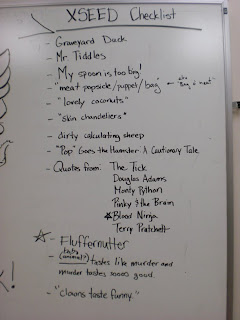 XSEED Checklist
- Graveyard Duck
- Mr. Tiddles
- My spoon is too big!
- "meat popsicle/puppet/bag" ← aka "Bag o' meat"
- "lovely coconuts"
- "skin chandeliers"
- dirty calculating sheep
- "Pop" Goes the Hamster: A Cautionary Tale
- Quotes from: The Tick
Douglas Adams
Monty Python
Pinky & the Brain
☆Blood Ninja
Terry Pratchett
☆ - Fluffernutter
- (baby animal?) tastes like murder and
murder tastes sooo good.
- "clowns taste funny."